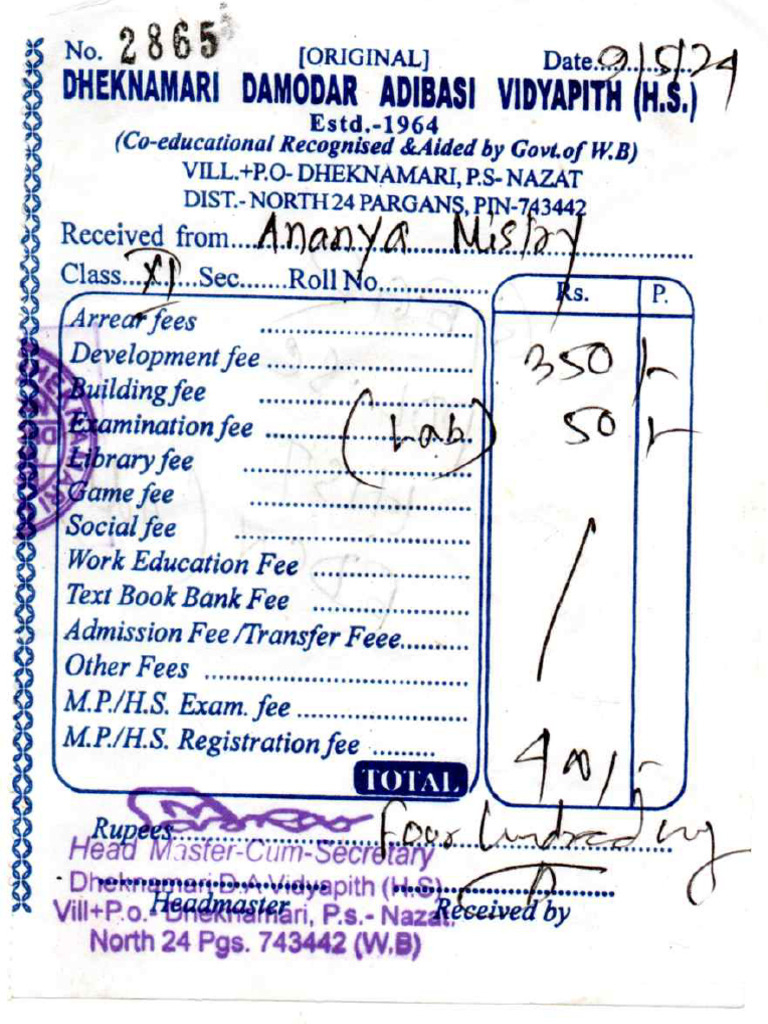 No. 2865 [ORIGINAL] Date...9/5/24
DHEKNAMARI DAMODAR ADIBASI VIDYAPITH (H.S.)
Estd.-1964
(Co-educational Recognised &Aided by Govt.of W.B)
VILL.+P.O- DHEKNAMARI, P.S- NAZAT
DIST.- NORTH 24 PARGANS, PIN-743442
Received from....Ananya Mistry
Class...XI....Sec.......Roll No................
Rs. P.
Arrear fees
Development fee 350/-
Building fee
Examination fee (Lab) 50/-
Library fee
Game fee
Social fee
Work Education Fee
Text Book Bank Fee
Admission Fee /Transfer Feee..........
Other Fees
M.P./H.S. Exam. fee
M.P./H.S. Registration fee
TOTAL 400/-
Rupees Four hundred only
Head Master-Cum-Secretary
Dheknamari D.A Vidyapith (H.S)
Headmaster Received by
Vill+P.o.- Dheknamari, P.s.- Nazat.
North 24 Pgs. 743442 (W.B)